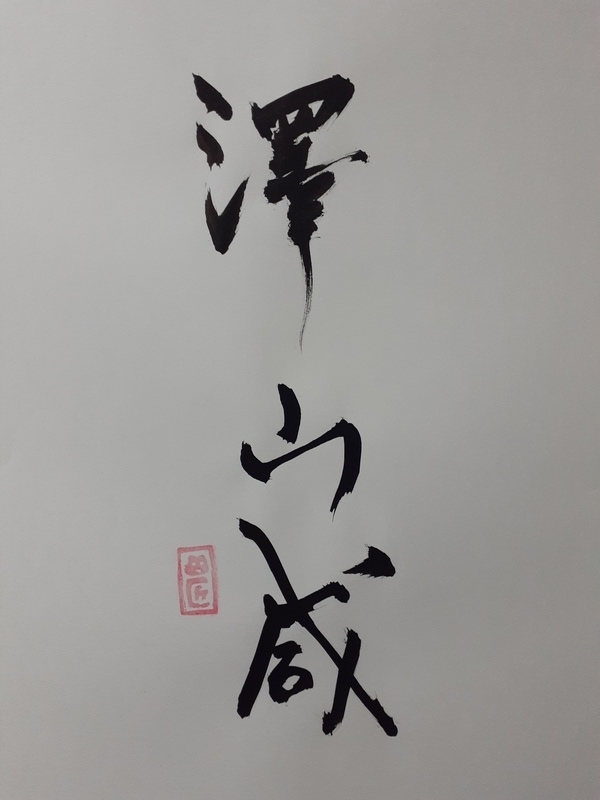 澤山咸